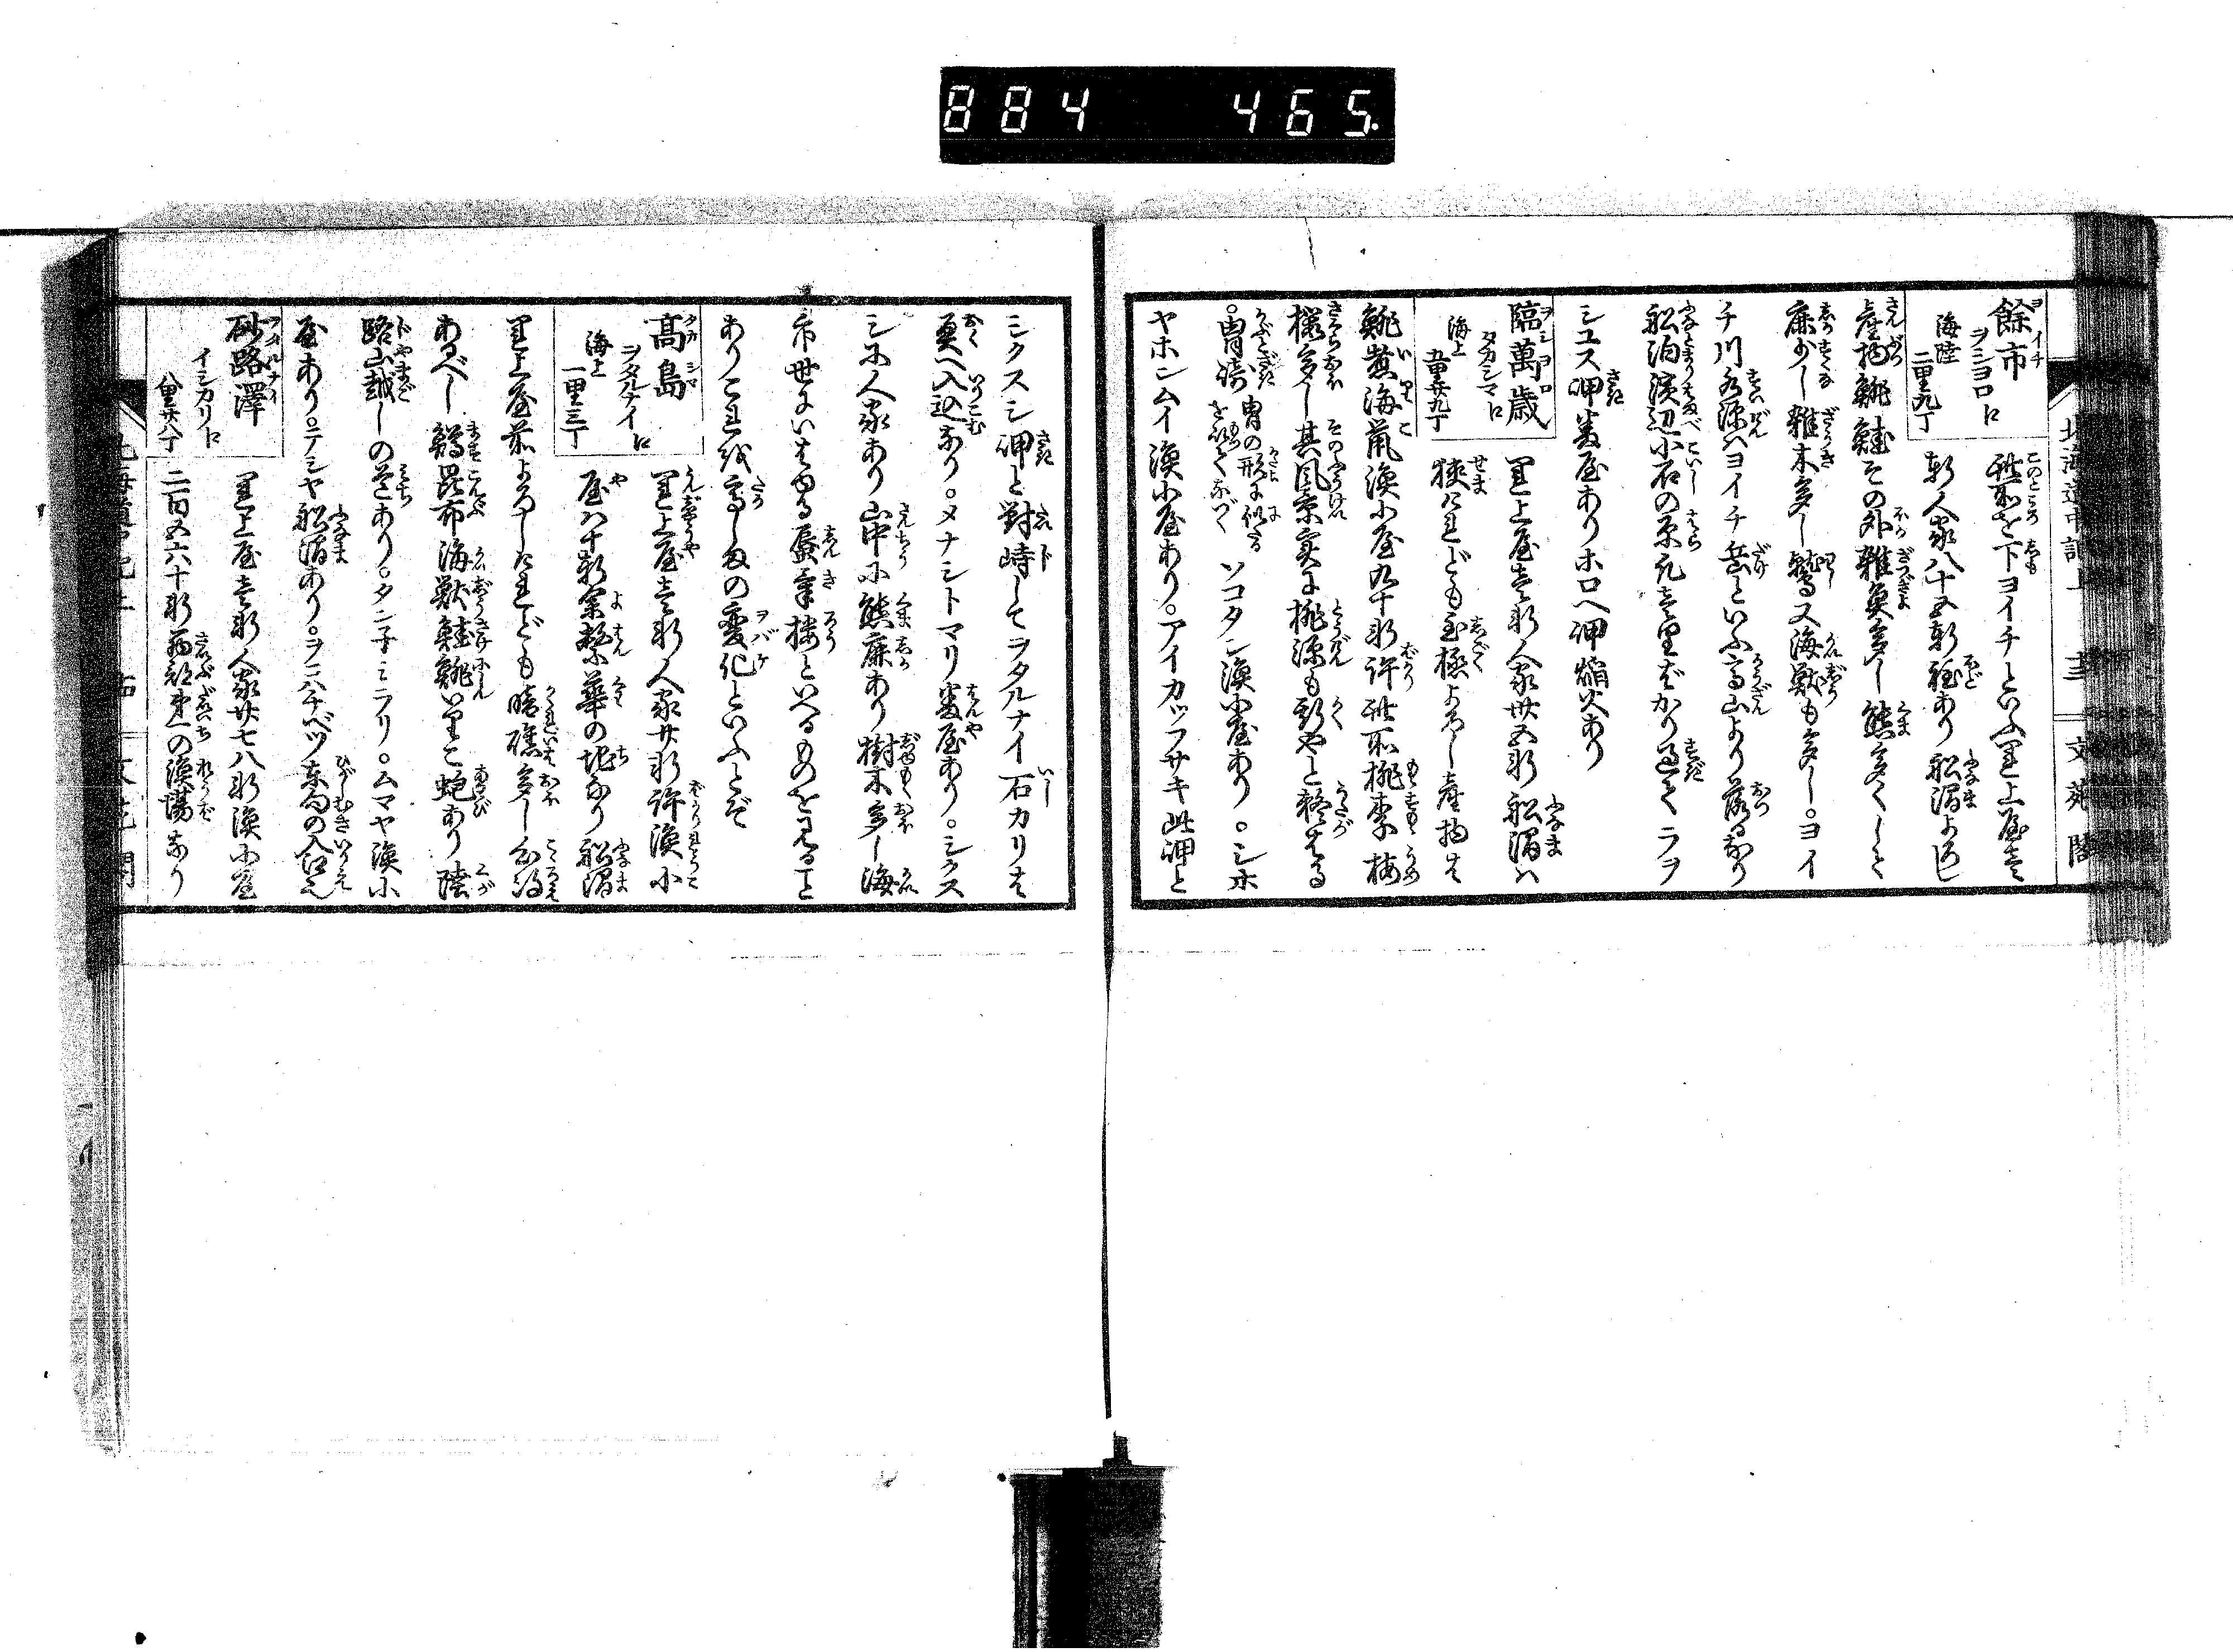 884 465.
北海道中記上 十三 文苑閣
餘市 ヨイチ
ヲシヨロヒ
海陸 二里九丁
此所を下ヨイチといふ運上屋壱
軒人家八十五軒程あり船澗よろし
産物鯡鮭その外雑魚多し熊多くして
鹿少し雑木多し鷲又海獣も多し。ヨイ
チ川水源ハヨイチ岳といふ高山より落るなり
船泊濱辺小石の原凡壱里ばかり過てラヲ
シユス岬番屋ありホロヘ岬焔火あり
臨萬歳 ヲシヨロ
タカシマヒ
海上
運上屋壱軒人家廿五軒船澗ハ
狭けれども至極よろし産物は
鯡煎海鼠漁小屋九十軒許此所桃李梅
櫻多し其風景実に桃源も斯やと疑はる
。冑崎 冑の形に似たるを以てなづく ソコタン漁小屋あり。シホ
ヤホンムイ漁小屋あり。アイカップサキ此岬と
ミクスシ岬と對峙してヲタルナイ石カリは
奥へ入込なり。メナシトマリ番屋あり。シクス
シ小人家あり山中に熊鹿あり樹木多し海
市世にいはゆる蜃気楼といへるものを見ること
ありこれを高しまの変化といふとぞ
高島 タカシマ
ヲタルナイヒ
海上 一里三丁
運上屋壱軒人家廿軒許漁小
屋ハ十軒余繁華の地なり船澗
運上屋前よろしけれども暗礁多し心得
あるべし鱒昆布海獣鮭鯡いりこ蚫あり陸
路山越しの道あり。タン子ミニフリ。ムマヤ漁小
屋あり。テミヤ船澗あり。ヲコハチベツ東向の入江也
砂路澤 ヲタルナイ
イシカリヒ
運上屋壱軒人家廿七八軒漁小屋
二百五六十軒西部第一の漁場なり